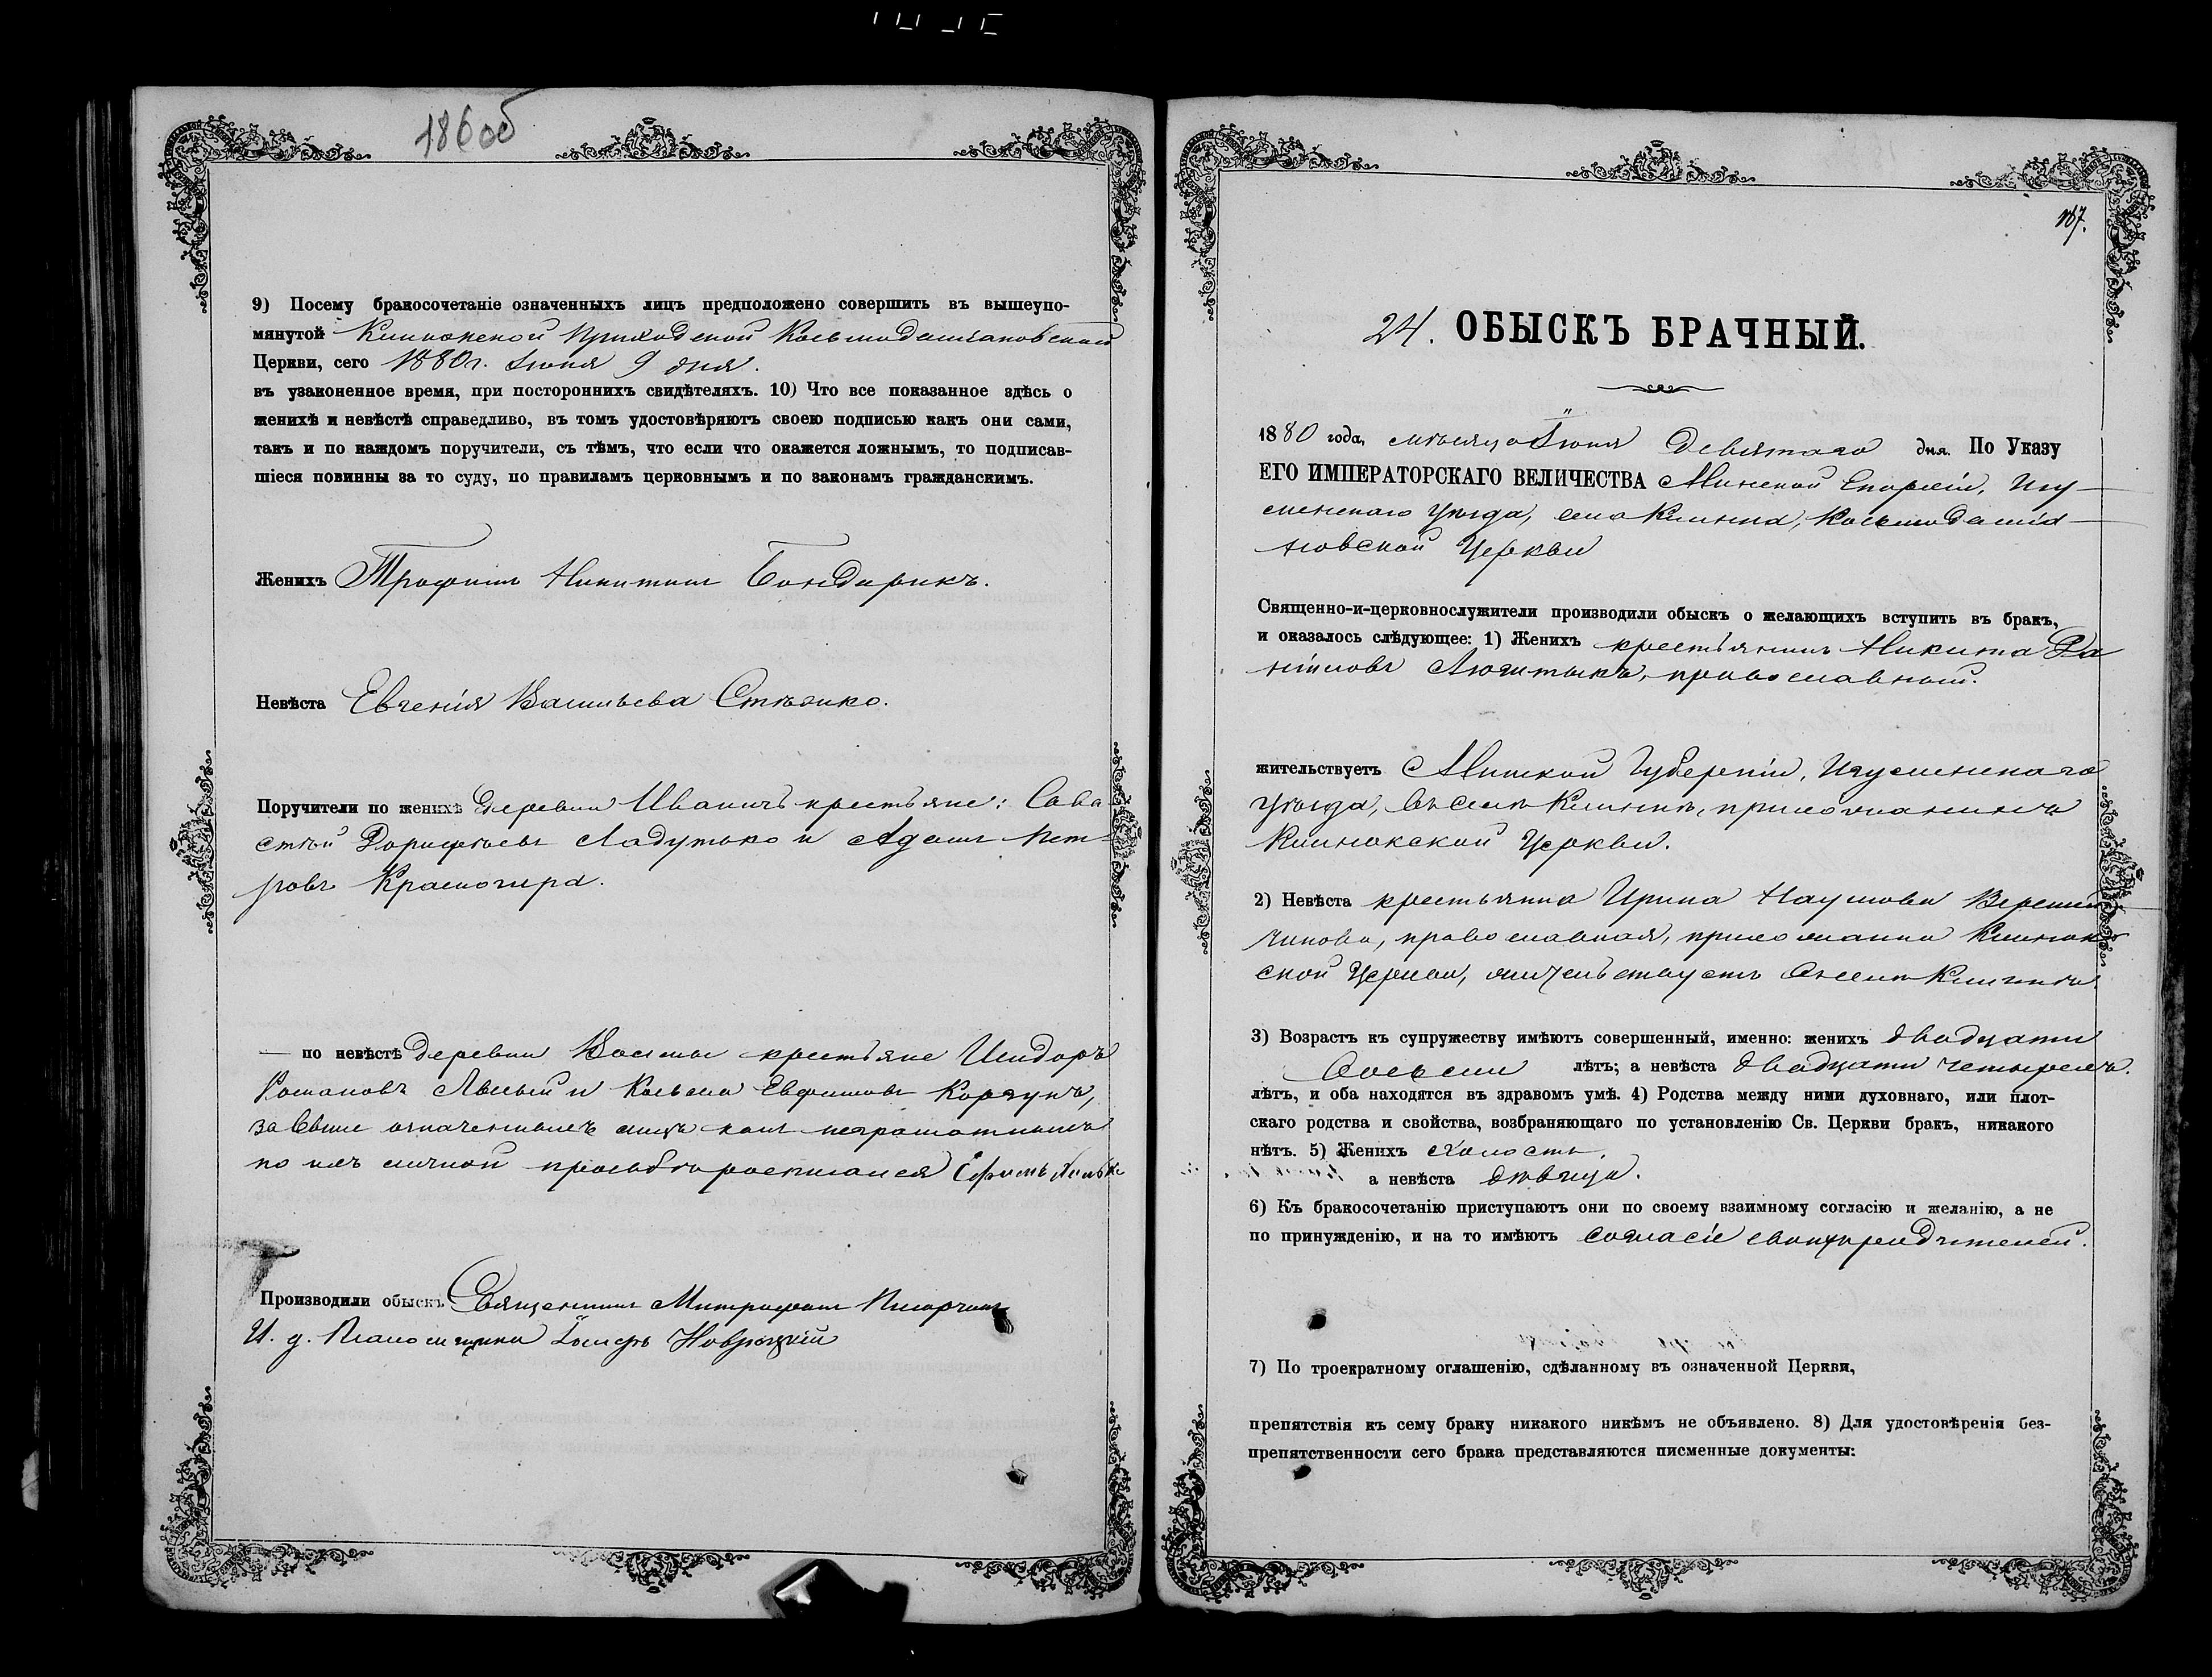 186 об
9) Посему бракосочетаніе означенныхъ лицъ предположено совершить въ вышеупо-
мянутой Клинокской Приходской Косьмодаміановской
Церкви, сего 1880 г. Іюня 9 дня.
въ узаконенное время, при постороннихъ свидѣтеляхъ. 10) Что все показанное здѣсь о
женихѣ и невѣстѣ справедливо, въ томъ удостовѣряютъ своею подписью какъ они сами,
такъ и по каждомъ поручители, съ тѣмъ, что если что окажется ложнымъ, то подписав-
шіеся повинны за то суду, по правиламъ церковнымъ и по законамъ гражданскимъ.
Женихъ Трофимъ Никитинъ Бондарикъ.
Невѣста Евгенія Васильева
Поручители по женихѣ деревни Иваничъ крестьяне: Сава
стѣй Ладутько и Адамъ Пет-
ровъ
— по невѣстѣ деревни крестьяне Исидоръ
Романовъ и Косьма Евфимовъ Корзунъ,
за выше означенныхъ лицъ какъ неграмотныхъ
по ихъ личной прозьбѣ росписался
Производили обыскъ Священникъ Митрофанъ
И. д. Псаломщика Іосифъ
187.
24. ОБЫСКЪ БРАЧНЫЙ.
1880 года, мѣсяца Іюня Девятаго дня. По Указу
ЕГО ИМПЕРАТОРСКАГО ВЕЛИЧЕСТВА Минской Епархіи, Игу-
менскаго Уѣзда, села Клинка, Косьмодаміа-
новской Церкви
Священно-и-церковнослужители производили обыскъ о желающихъ вступить въ бракъ,
и оказалось слѣдующее: 1) Женихъ крестьянинъ Никита Да
ніиловъ православный.
жительствуетъ Минской Губерніи, Игуменскаго
Уѣзда, въ селѣ Клинкѣ, прихожанинъ
Клинокской Церкви.
2) Невѣста крестьянка Ирина Наумова Веремей
чикова, православная, прихожанка Клинок
ской Церкви, жительствуетъ въ селѣ Клинкѣ.
3) Возрастъ къ супружеству имѣютъ совершенный, именно: женихъ двадцати
восьми лѣтъ; а невѣста двадцати четырехъ.
лѣтъ, и оба находятся въ здравомъ умѣ. 4) Родства между ними духовнаго, или плот-
скаго родства и свойства, возбраняющаго по установленію Св. Церкви бракъ, никакого
нѣтъ. 5) Женихъ холостъ,
а невѣста дѣвица.
6) Къ бракосочетанію приступаютъ они по своему взаимному согласію и желанію, а не
по принужденію, и на то имѣютъ согласіе своихъ родителей.
7) По троекратному оглашенію, сдѣланному въ означенной Церкви,
препятствія къ сему браку никакого никѣмъ не объявлено. 8) Для удостовѣренія без-
препятственности сего брака представляются писменные документы: